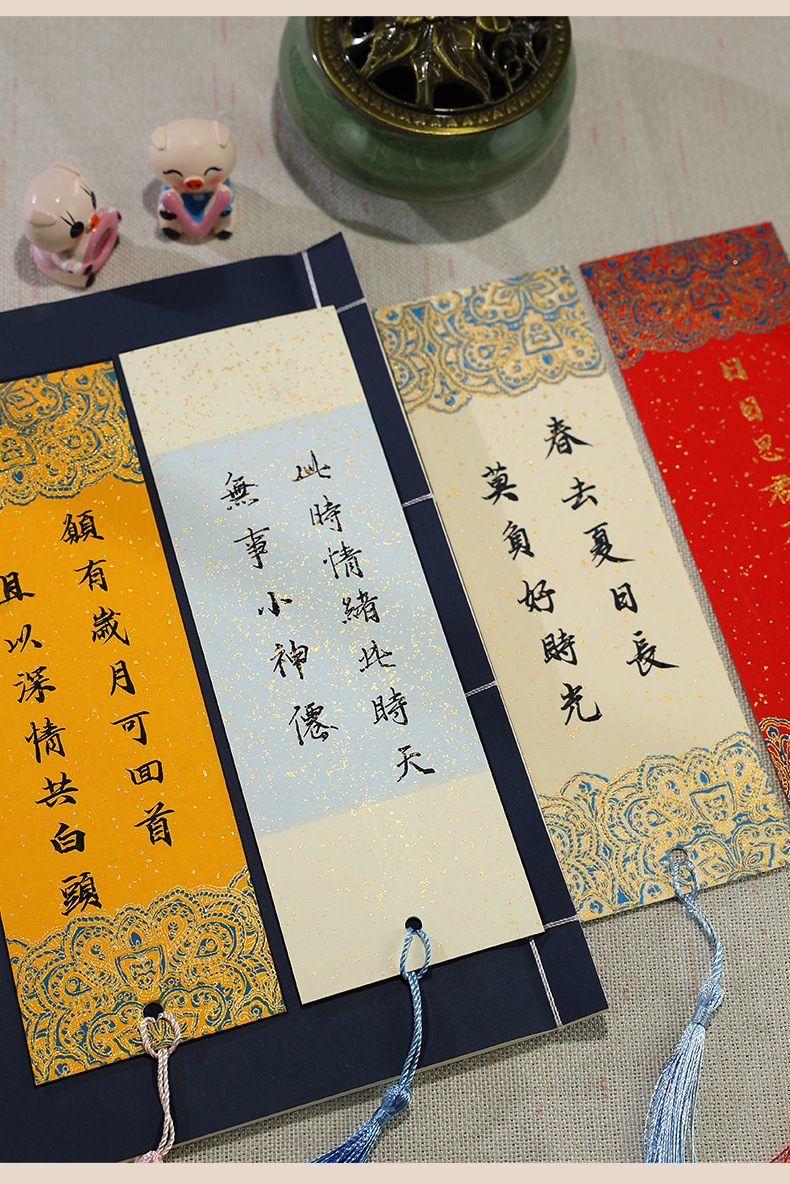 願有歲月可回首
且以深情共白頭
此時情緒此時天
無事小神僊
春去夏日長
莫負好時光
日日思君